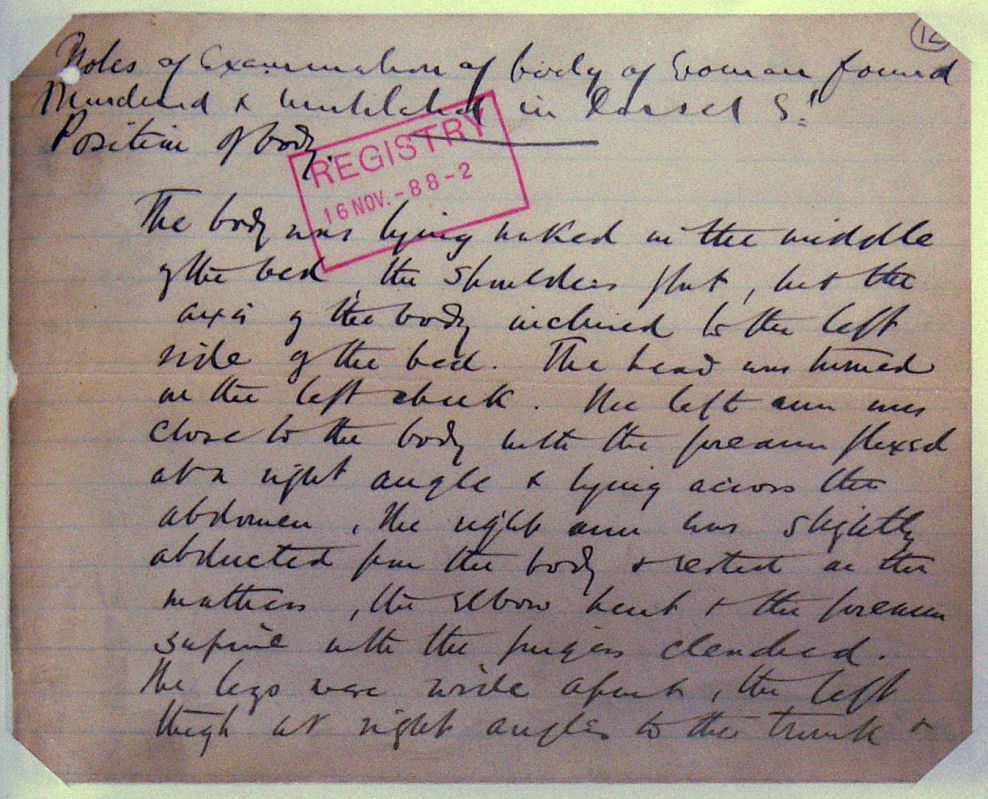 12
Notes of Examination of body of Woman found
Murdered & Mutilated in Dorset St.
Position of body.
REGISTRY
16 NOV.-88-2
The body was lying naked in the middle
of the bed, the shoulders flat, but the
axis of the body inclined to the left
side of the bed. The head was turned
on the left cheek. The left arm was
close to the body with the forearm flexed
at a right angle & lying across the
abdomen, the right arm was slightly
abducted from the body & rested on the
mattress, the elbow bent & the forearm
supine with the fingers clenched.
The legs were wide apart, the left
thigh at right angles to the trunk &